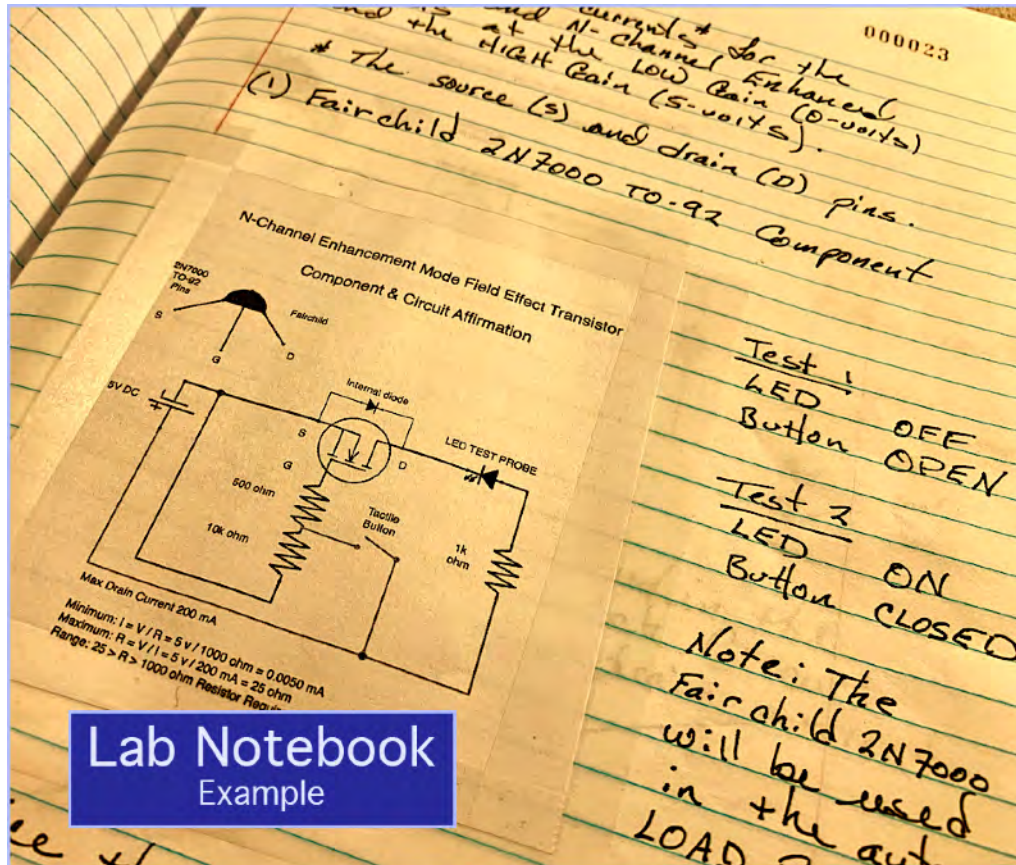 000023
and currents* for the
and N-Channel Enhanced
at the LOW Gain (0-volts)
and the HIGH Gain (5-volts).
* The source (S) and drain (D) pins.
(1) Fairchild 2N7000 TO-92 Component
N-Channel Enhancement Mode Field Effect Transistor
Component & Circuit Affirmation
2N7000
TO-92
Pins
Fairchild
S
G
D
5V DC
+
Internal diode
S
G
D
LED TEST PROBE
500 ohm
10k ohm
Tactile
Button
1k
ohm
Max Drain Current 200 mA
Minimum: I = V / R = 5 v / 1000 ohm = 0.0050 mA
Maximum: R = V / I = 5 v / 200 mA = 25 ohm
Range: 25 > R > 1000 ohm Resistor
Test 1
LED OFF
Button OPEN
Test 2
LED ON
Button CLOSED
Note: The
Fairchild 2N7000
will be used
in the
LOAD
Lab Notebook
Example